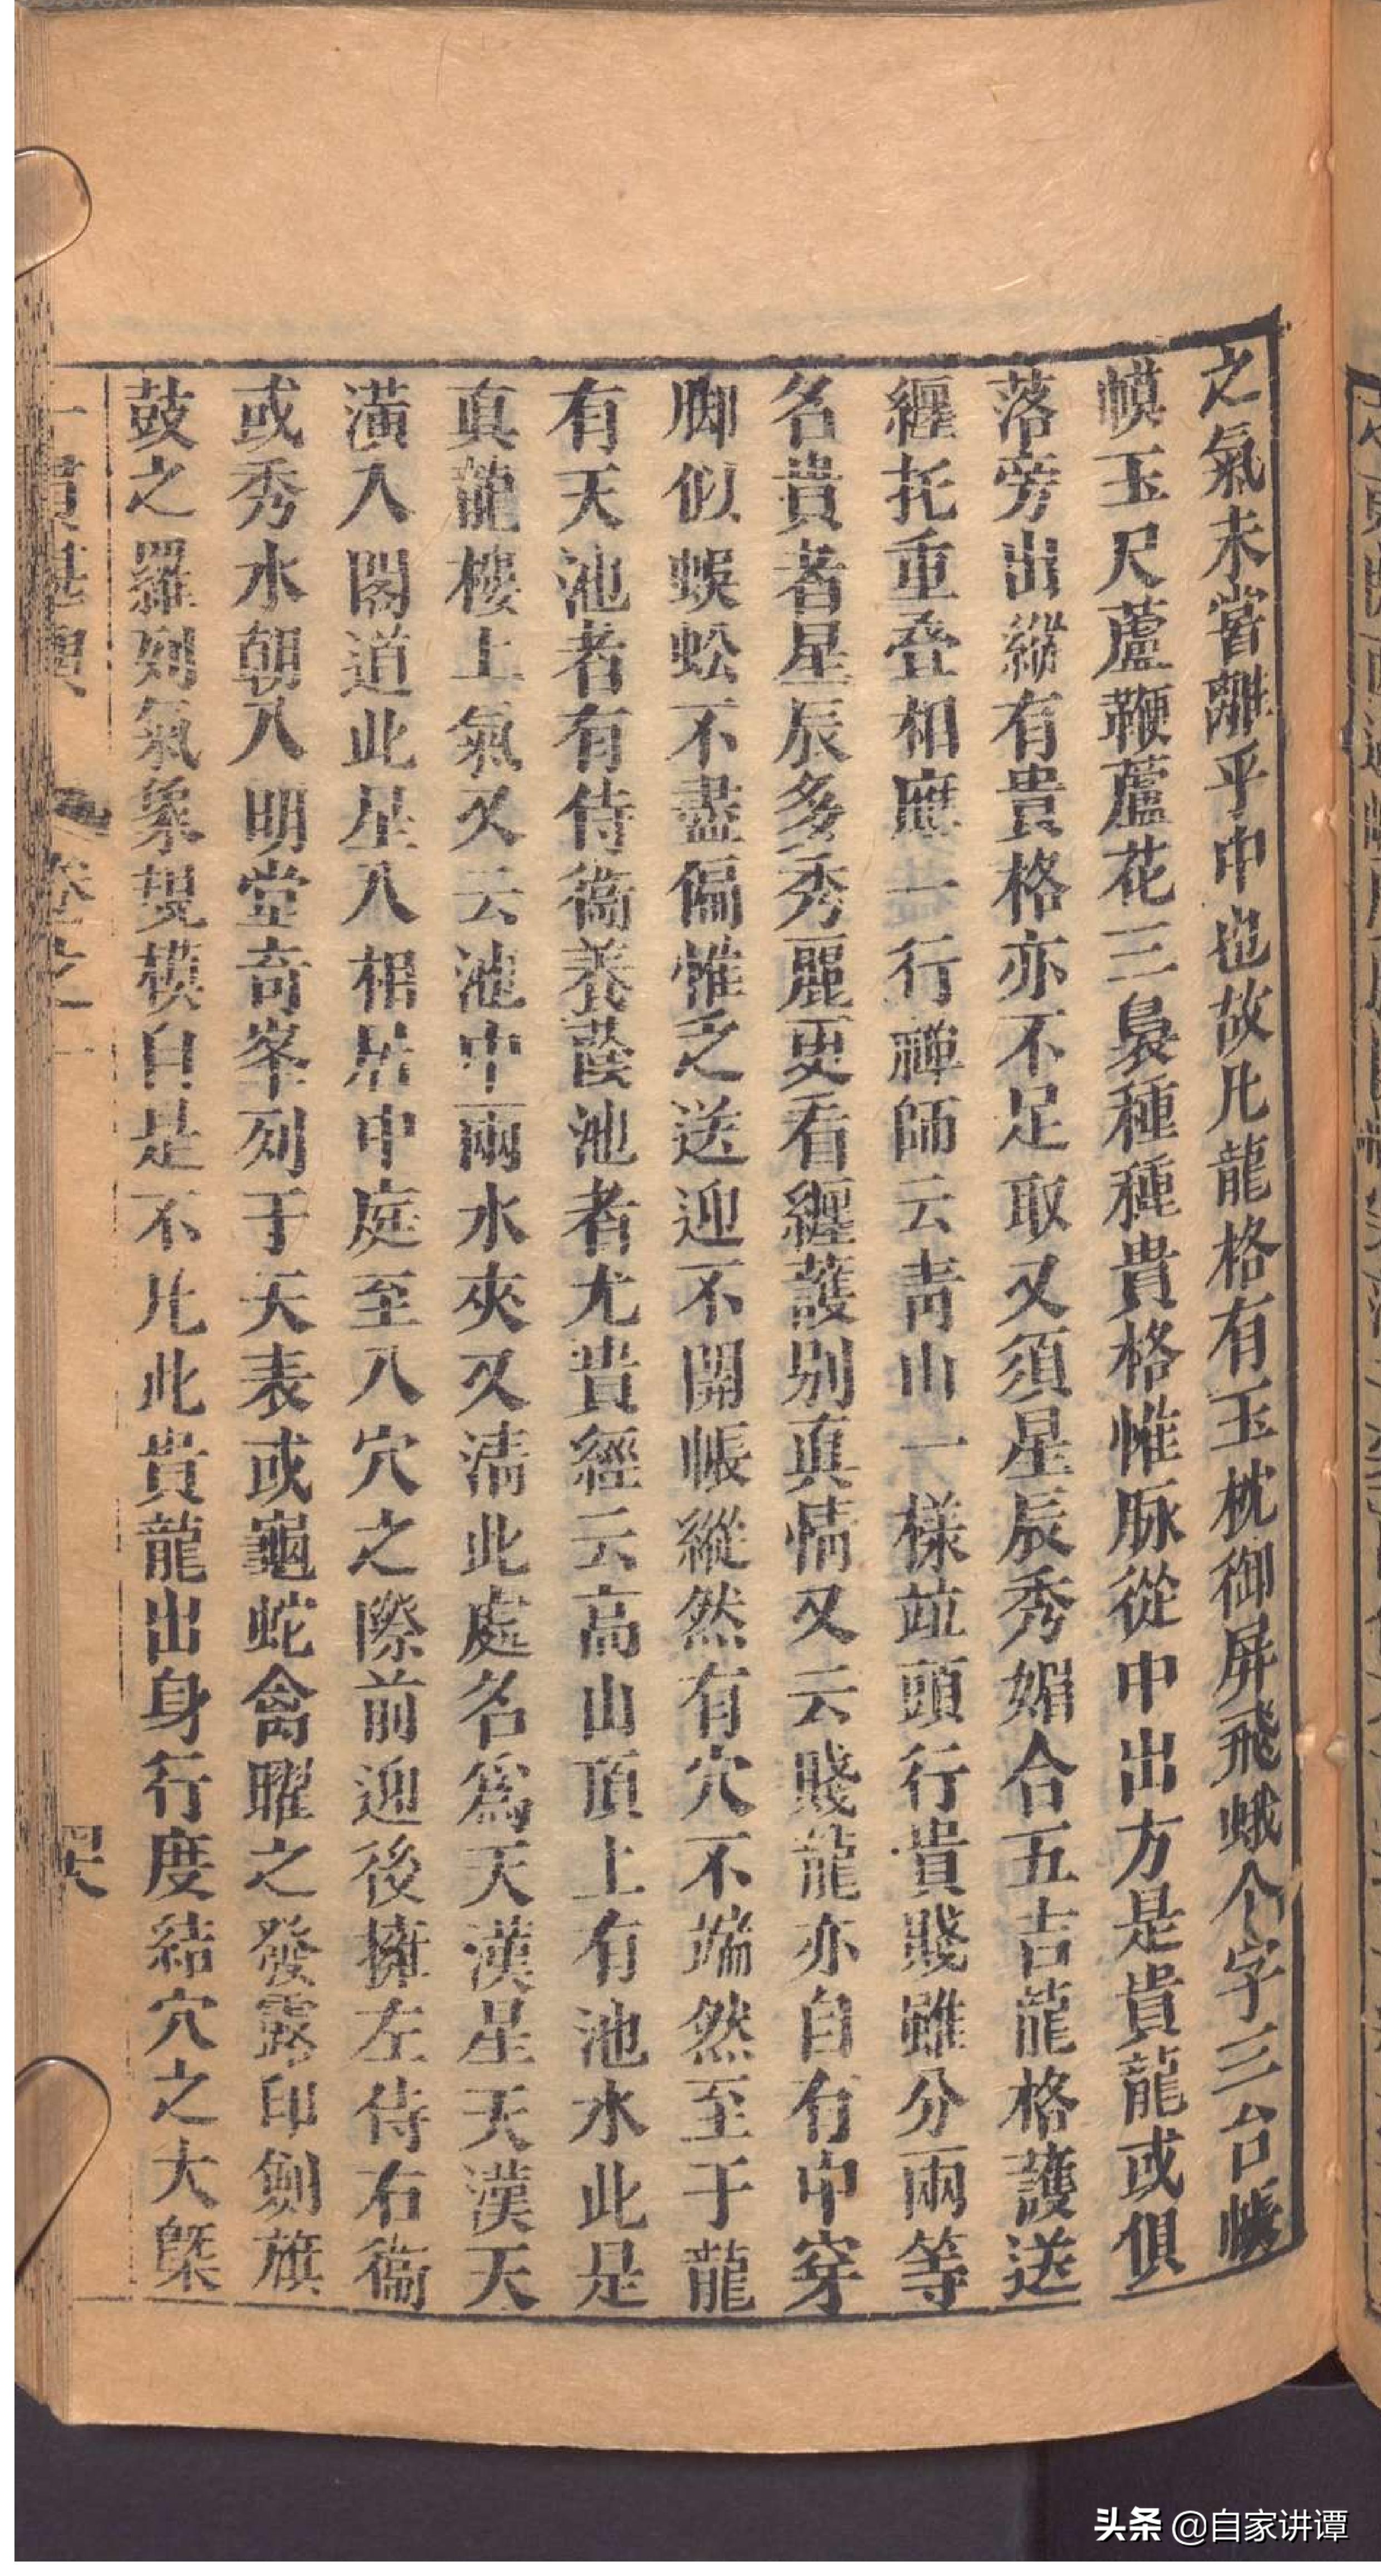 之氣未嘗離乎中也故凡龍格有玉枕御屏飛蛾个字三台帳
幙玉尺蘆鞭蘆花三裊種種貴格惟脉從中出方是貴龍或俱
落旁出縱有貴格亦不足取又須星辰秀媚合五吉龍格護送
纏托重叠相應一行禪師云青山一樣竝頭行貴賤雖分兩等
名貴者星辰多秀麗更看纏護别真情又云賤龍亦自有中穿
脚似蜈蚣不盡偏惟乏送迎不開帳縱然有穴不端然至于龍
有天池者有侍衞養蔭池者尤貴經云高山頂上有池水此是
真龍樓上氣又云池中兩水夾又清此處名爲天漢星天漢天
潢入閣道此星入相居中庭至入穴之際前迎後擁左侍右衞
或秀水朝入明堂奇峯列于天表或龜蛇禽曜之發露印劍旗
鼓之羅列氣象規模自是不凡此貴龍出身行度結穴之大槩
卷之一
四六
头条 @自家讲谭